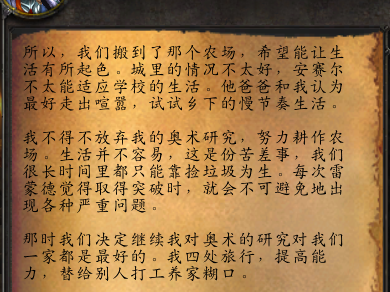 所以，我们搬到了那个农场，希望能让生
活有所起色。城里的情况不太好，安赛尔
不太能适应学校的生活。他爸爸和我认为
最好走出喧嚣，试试乡下的慢节奏生活。
我不得不放弃我的奥术研究，努力耕作农
场。生活并不容易，这是份苦差事，我们
很长时间里都只能靠捡垃圾为生。每次雷
蒙德觉得取得突破时，就会不可避免地出
现各种严重问题。
那时我们决定继续我对奥术的研究对我们
一家都是最好的。我四处旅行，提高能
力，替给别人打工养家糊口。